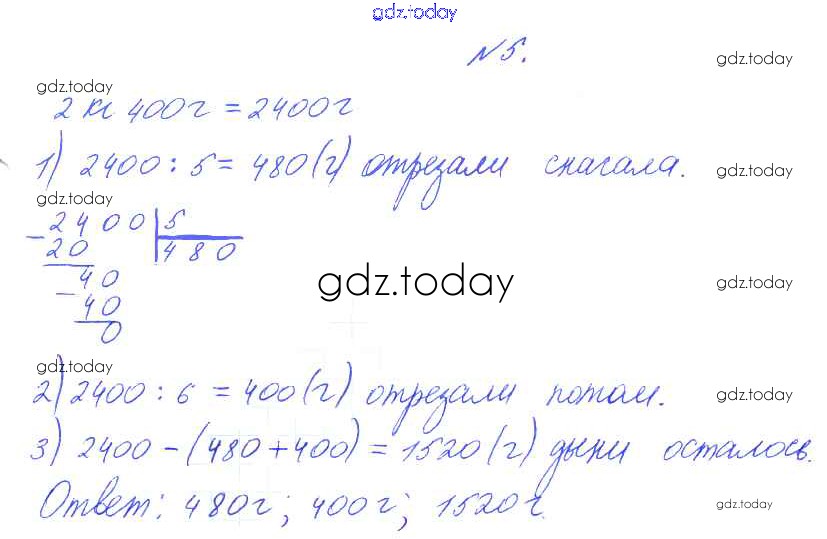 gdz.today
№5.
gdz.today
gdz.today
2 кг 400г = 2400г
1) 2400 : 5 = 480(г) отрезали сначала.
gdz.today
gdz.today
2400 | 5
- 20 | 480
40
- 40
0
gdz.today
gdz.today
gdz.today
2) 2400 : 6 = 400(г) отрезали потом.
gdz.today
3) 2400 - (480 + 400) = 1520(г) дыни осталось.
gdz.today
Ответ: 480г; 400г; 1520г.
gdz.today